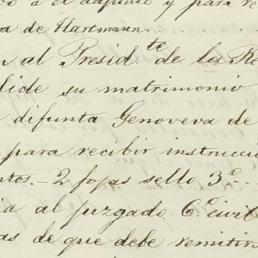 a el adjunto y para re
a de Hartmann.
n al Presid.te de la Re
lide su matrimonio
difunta Genoveva de
para recibir instrucci
tos. - 2 fojas sello 3.o -
ia al juzgado 6.o civil
as de que debe remitirs